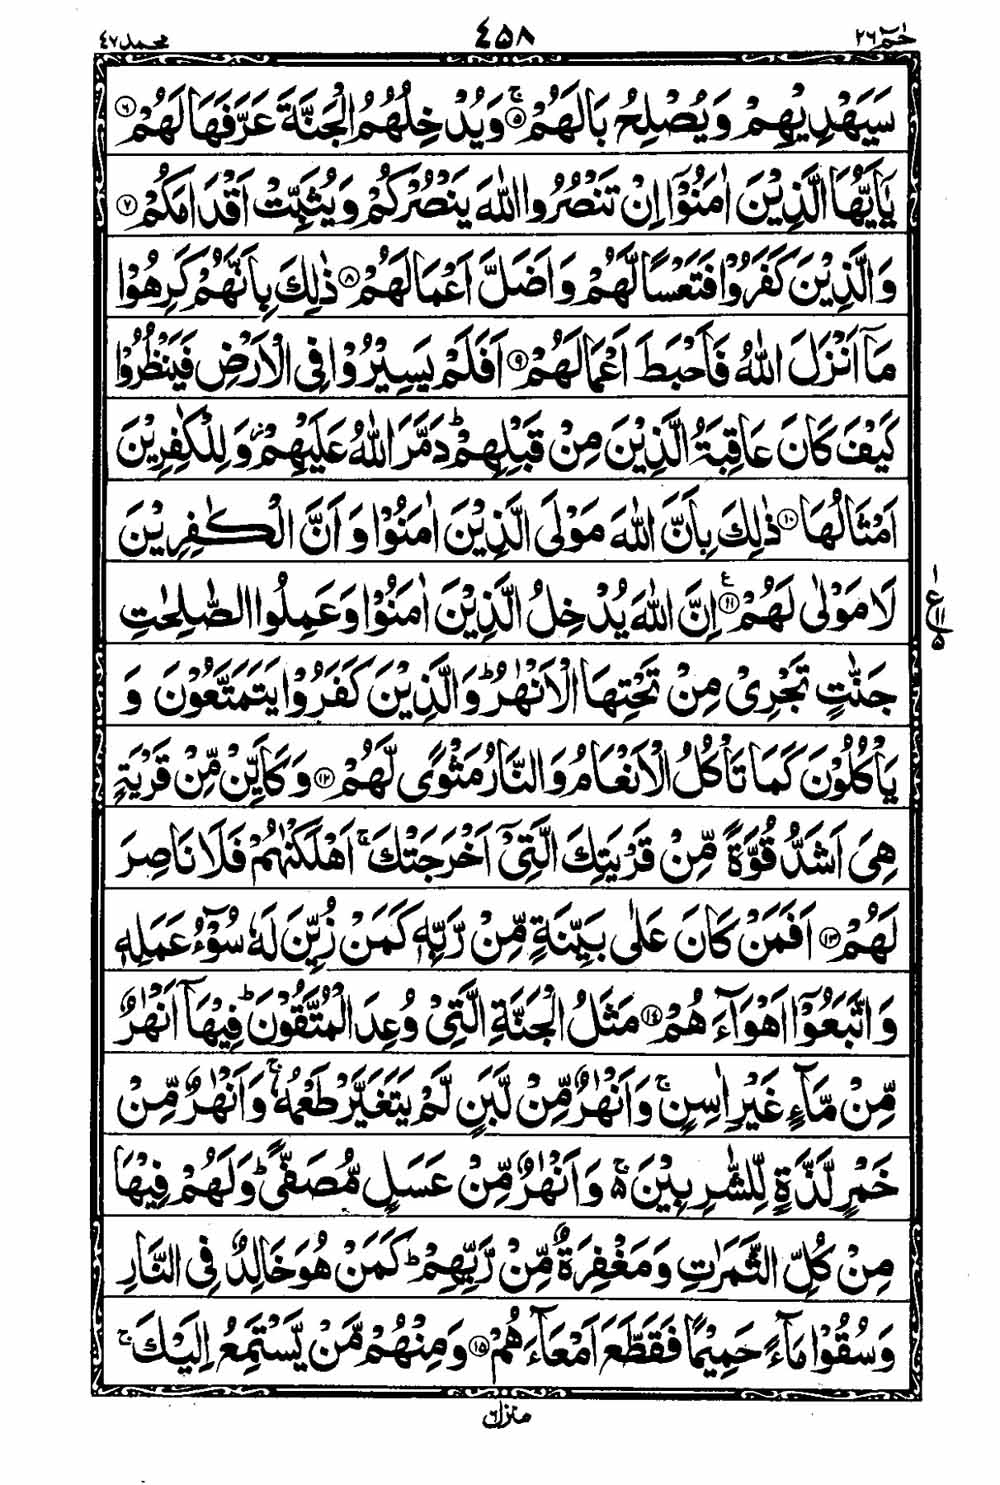 حٰمٓ ٢٦
٤٥٨
محمد ٤٧
سَيَهْدِيْهِمْ وَيُصْلِحُ بَالَهُمْ ۚ‏﴿۵﴾ وَيُدْخِلُهُمُ الْجَنَّةَ عَرَّفَهَا لَهُمْ ﴿۶﴾
يٰۤاَيُّهَا الَّذِيْنَ اٰمَنُوْۤا اِنْ تَنْصُرُوا اللّٰهَ يَنْصُرْكُمْ وَيُثَبِّتْ اَقْدَامَكُمْ ﴿۷﴾
وَالَّذِيْنَ كَفَرُوْا فَتَعْسًا لَّهُمْ وَاَضَلَّ اَعْمَالَهُمْ ﴿۸﴾ ذٰلِكَ بِاَنَّهُمْ كَرِهُوْا
مَاۤ اَنْزَلَ اللّٰهُ فَاَحْبَطَ اَعْمَالَهُمْ ﴿۹﴾ اَفَلَمْ يَسِيْرُوْا فِى الْاَرْضِ فَيَنْظُرُوْا
كَيْفَ كَانَ عَاقِبَةُ الَّذِيْنَ مِنْ قَبْلِهِمْ ؕ دَمَّرَ اللّٰهُ عَلَيْهِمْ ۚ وَلِلْكٰفِرِيْنَ
اَمْثَالُهَا ﴿۱۰﴾ ذٰلِكَ بِاَنَّ اللّٰهَ مَوْلَى الَّذِيْنَ اٰمَنُوْا وَاَنَّ الْكٰفِرِيْنَ
لَا مَوْلٰى لَهُمْ ﴿۱۱﴾ ع اِنَّ اللّٰهَ يُدْخِلُ الَّذِيْنَ اٰمَنُوْا وَعَمِلُوا الصّٰلِحٰتِ
جَنّٰتٍ تَجْرِىْ مِنْ تَحْتِهَا الْاَنْهٰرُ ؕ وَالَّذِيْنَ كَفَرُوْا يَتَمَتَّعُوْنَ وَ
يَاْكُلُوْنَ كَمَا تَاْكُلُ الْاَنْعَامُ وَالنَّارُ مَثْوًى لَّهُمْ ﴿۱۲﴾ وَكَاَيِّنْ مِّنْ قَرْيَةٍ
هِىَ اَشَدُّ قُوَّةً مِّنْ قَرْيَتِكَ الَّتِىْۤ اَخْرَجَتْكَ ۚ اَهْلَكْنٰهُمْ فَلَا نَاصِرَ
لَهُمْ ﴿۱۳﴾ اَفَمَنْ كَانَ عَلٰى بَيِّنَةٍ مِّنْ رَّبِّهٖ كَمَنْ زُيِّنَ لَهٗ سُوْٓءُ عَمَلِهٖ
وَاتَّبَعُوْۤا اَهْوَآءَهُمْ ﴿۱۴﴾ مَثَلُ الْجَنَّةِ الَّتِىْ وُعِدَ الْمُتَّقُوْنَ ؕ فِيْهَاۤ اَنْهٰرٌ
مِّنْ مَّآءٍ غَيْرِ اٰسِنٍ ۚ وَاَنْهٰرٌ مِّنْ لَّبَنٍ لَّمْ يَتَغَيَّرْ طَعْمُهٗ ۚ وَاَنْهٰرٌ مِّنْ
خَمْرٍ لَّذَّةٍ لِّلشّٰرِبِيْنَ ۚ۬ وَاَنْهٰرٌ مِّنْ عَسَلٍ مُّصَفًّى ؕ وَلَهُمْ فِيْهَا
مِنْ كُلِّ الثَّمَرٰتِ وَمَغْفِرَةٌ مِّنْ رَّبِّهِمْ ؕ كَمَنْ هُوَ خَالِدٌ فِى النَّارِ
وَسُقُوْا مَآءً حَمِيْمًا فَقَطَّعَ اَمْعَآءَهُمْ ﴿۱۵﴾ وَمِنْهُمْ مَّنْ يَّسْتَمِعُ اِلَيْكَ ۚ
منزل ٦